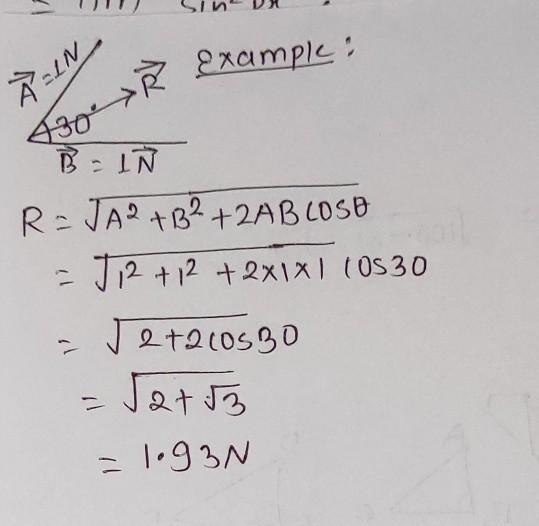 Example:
A⃗ = 1N
R⃗
30°
B⃗ = 1N⃗
R = √A² + B² + 2AB cosθ
= √1² + 1² + 2×1×1 cos30
= √2+2cos30
= √2+√3
= 1.93N